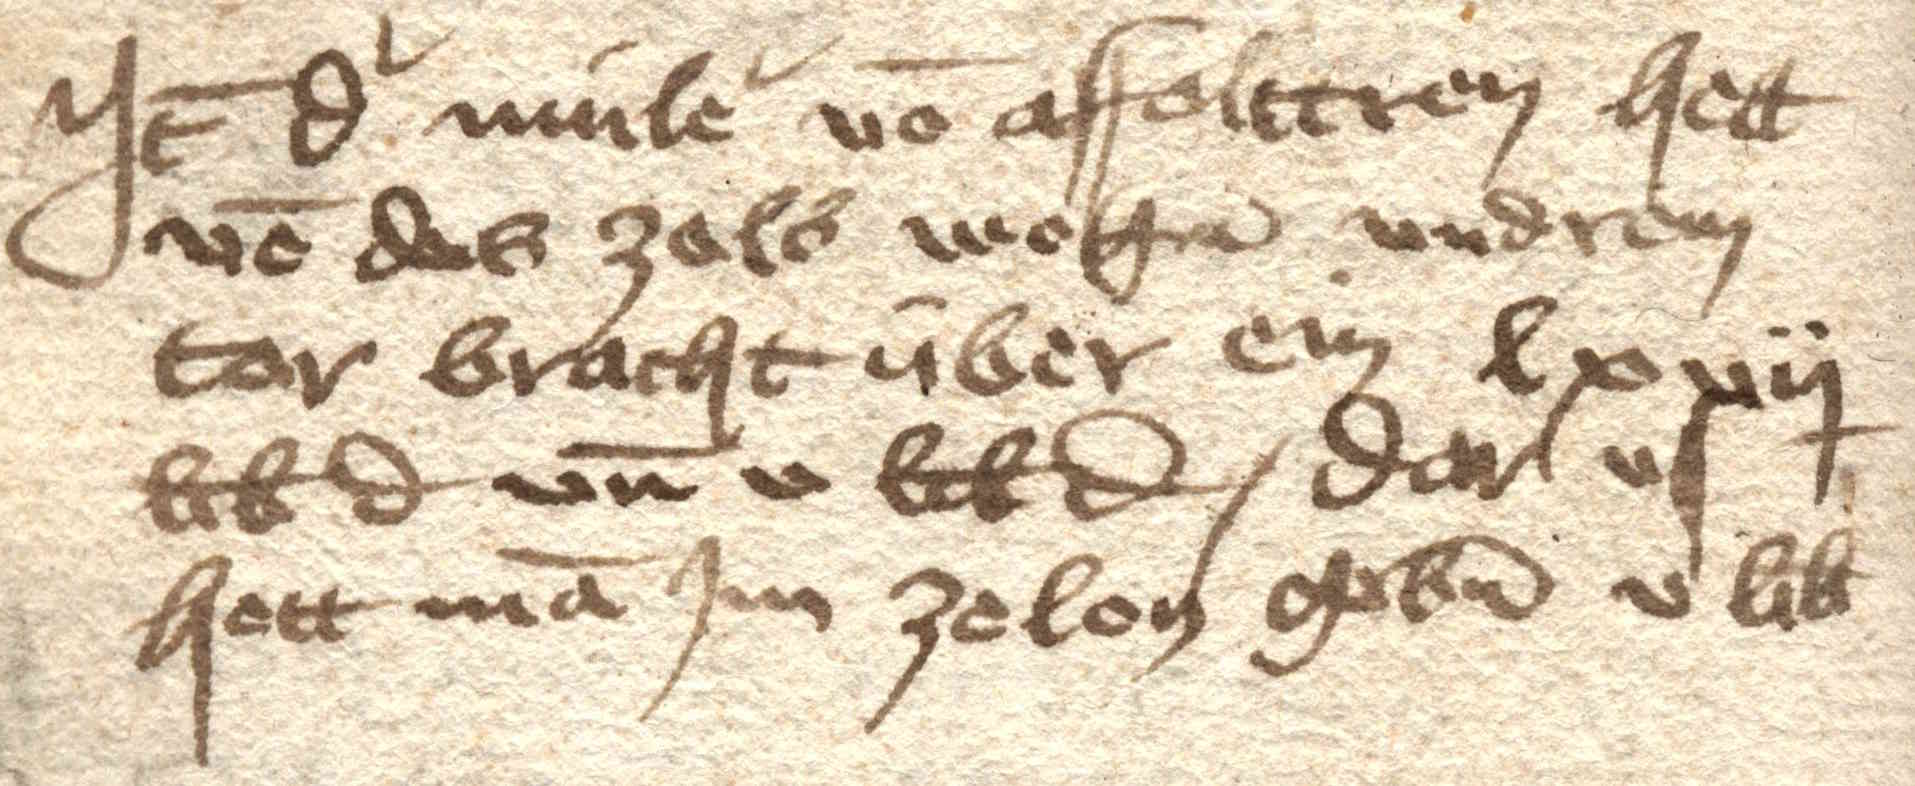 Yt̄ dˀ mu̇leˀ vō affolttren hett
vō des zolls wegen̄ vndrem
tor bracht über ein lxxvij
lib d vn̄ v lib d / dar vs
hett mā Jm ze lon gebn̄ v lib